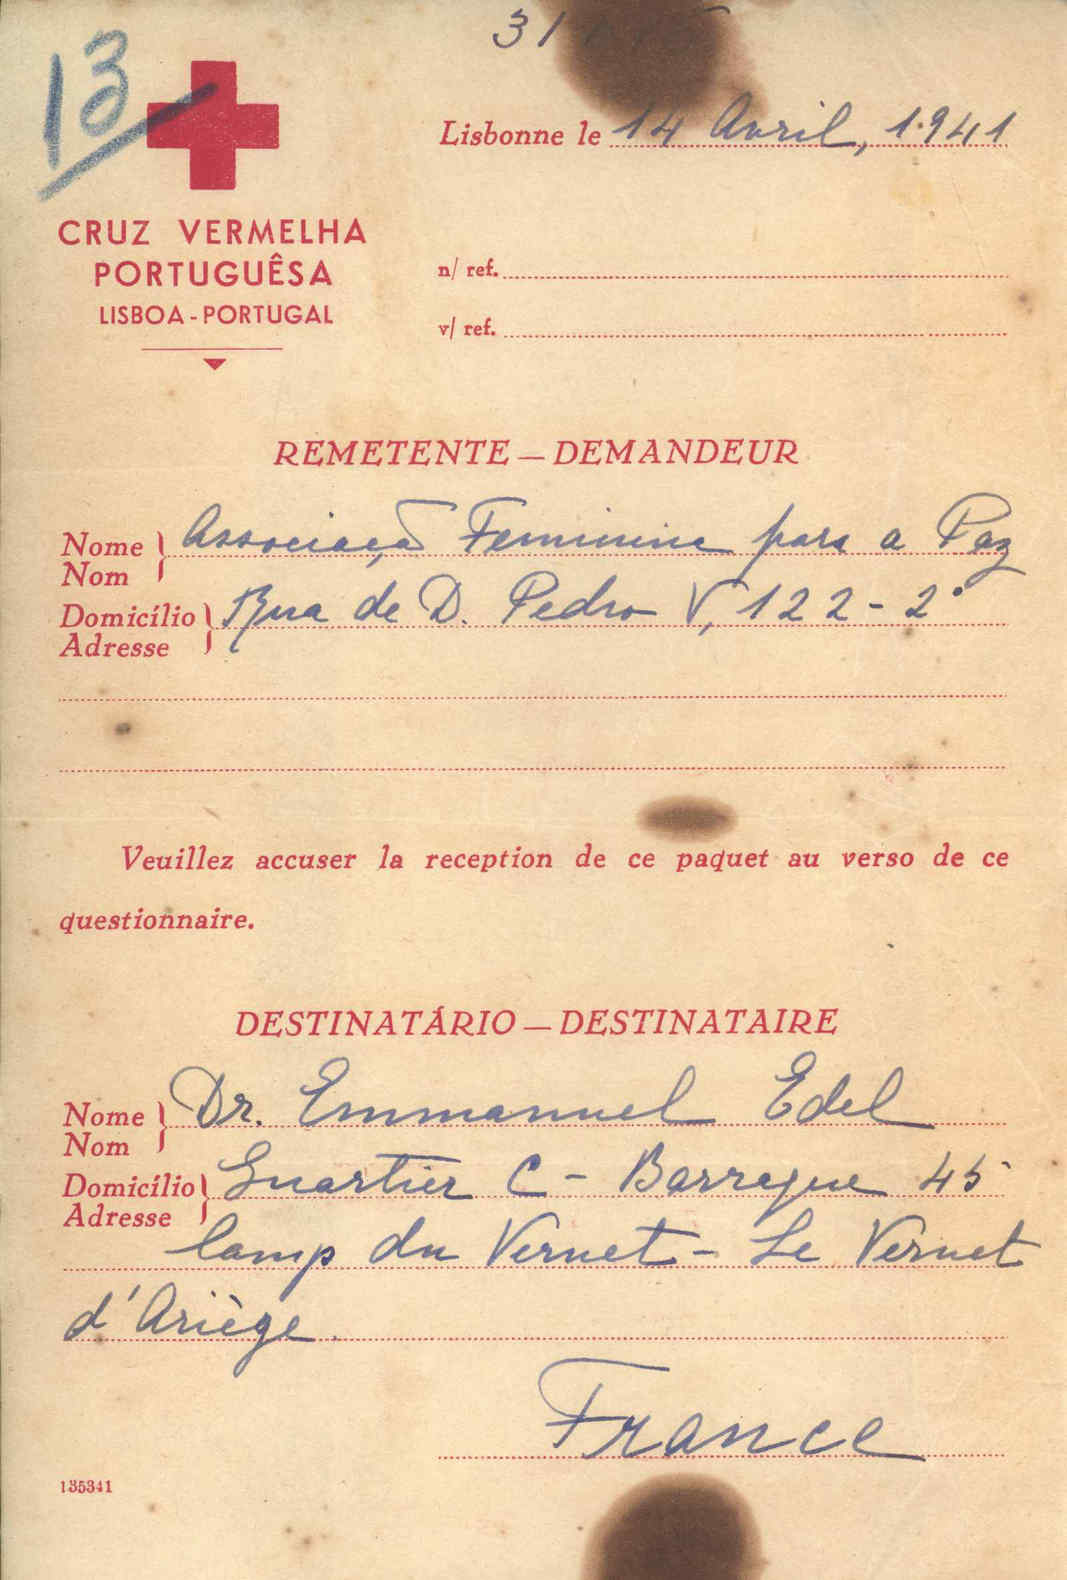 31
13
Lisbonne le 14 Avril, 1941
CRUZ VERMELHA
PORTUGUÊSA
LISBOA - PORTUGAL
n/ ref.
v/ ref.
REMETENTE — DEMANDEUR
Nome Associaçã Feminina para a Paz
Nom
Domicílio Rua de D. Pedro V, 122 - 2º
Adresse
Veuillez accuser la reception de ce paquet au verso de ce
questionnaire.
DESTINATÁRIO — DESTINATAIRE
Nome Dr. Emmanuel Edel
Nom
Domicílio Quartier C - Barraque 45
Adresse
Camp du Vernet - Le Vernet
d'Ariège.
France
135341